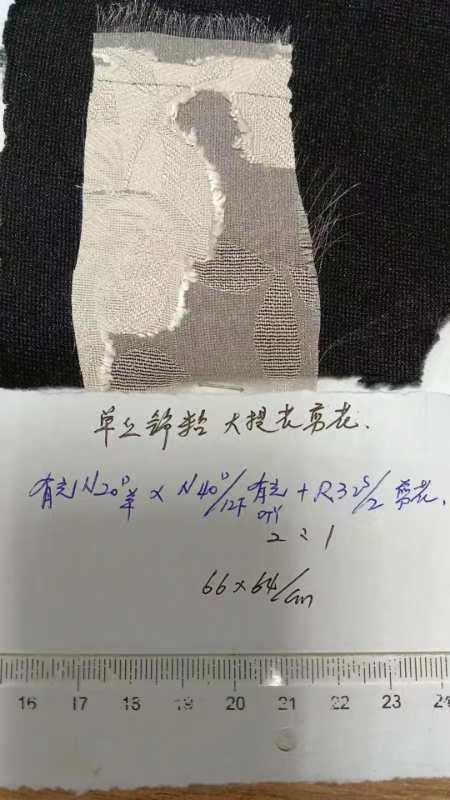 单丝锦粘 大提花剪花.
有光N20D单 x N40D/12F有光 + R32S/2 剪花.
2:1
66x64/cm
16 17 18 19 20 21 22 23 24